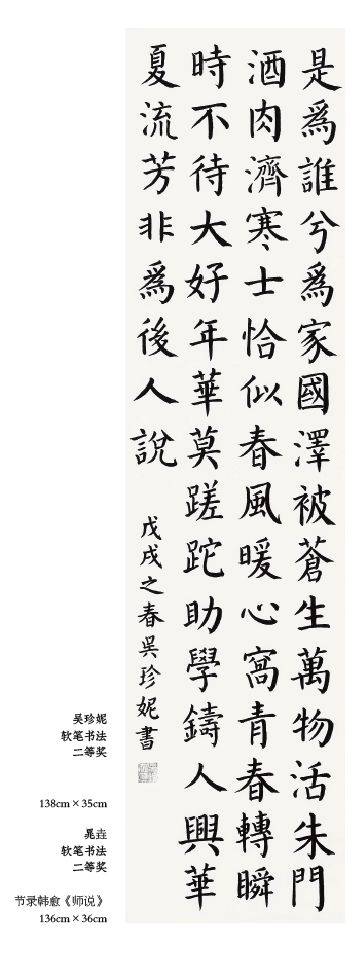 是爲誰兮爲家國澤被蒼生萬物活朱門
酒肉濟寒士恰似春風暖心窩青春轉瞬
時不待大好年華莫蹉跎助學鑄人興華
夏流芳非爲後人說
戊戌之春吳珍妮書
吴珍妮
软笔书法
二等奖
138cm×35cm
晁垚
软笔书法
二等奖
节录韩愈《师说》
136cm×36cm